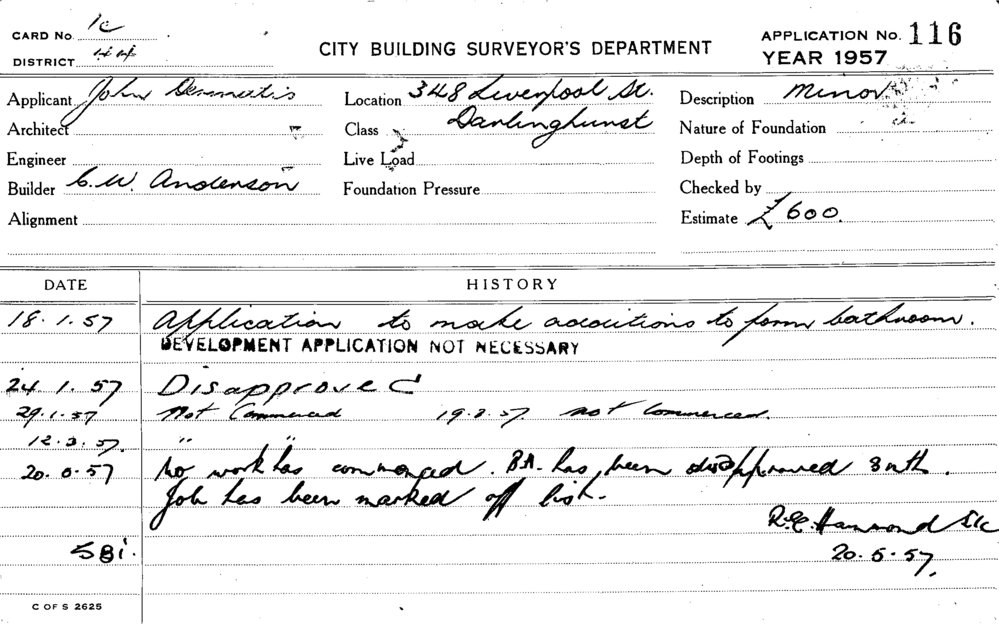 CARD No. 1c
DISTRICT
CITY BUILDING SURVEYOR'S DEPARTMENT
APPLICATION No. 116
YEAR 1957
Applicant John
Location 348 Liverpool St.
Description Minor
Architect
Class Darlinghurst
Nature of Foundation
Engineer
Live Load
Depth of Footings
Builder C.W. Anderson
Foundation Pressure
Checked by
Alignment
Estimate £600.
DATE
HISTORY
18.1.57 Application to make additions to form bathroom.
DEVELOPMENT APPLICATION NOT NECESSARY
24.1.57 Disapproved
29.1.57 Not Commenced 19.2.57 not Commenced.
12.3.57. " "
20.5.57 No work has commenced. BA. has been disapproved 3 mth.
Job has been marked off list.
R.C. Hammond
20.5.57.
5Bi.
C OF S 2625